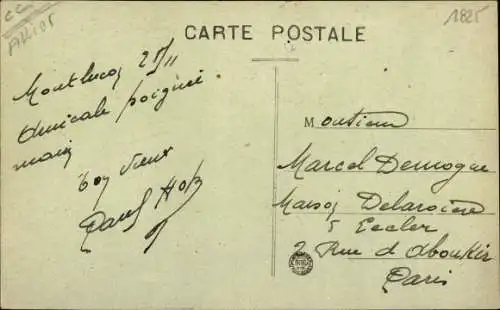 CC
Allier
1825
CARTE POSTALE
Montluçon 25/11
Amicale poignée
main
Ton vieux
Paul
Monsieur
Marcel Demogue
Maison Delarivière
5 Eccler
2 Rue d'Aboukir
Paris